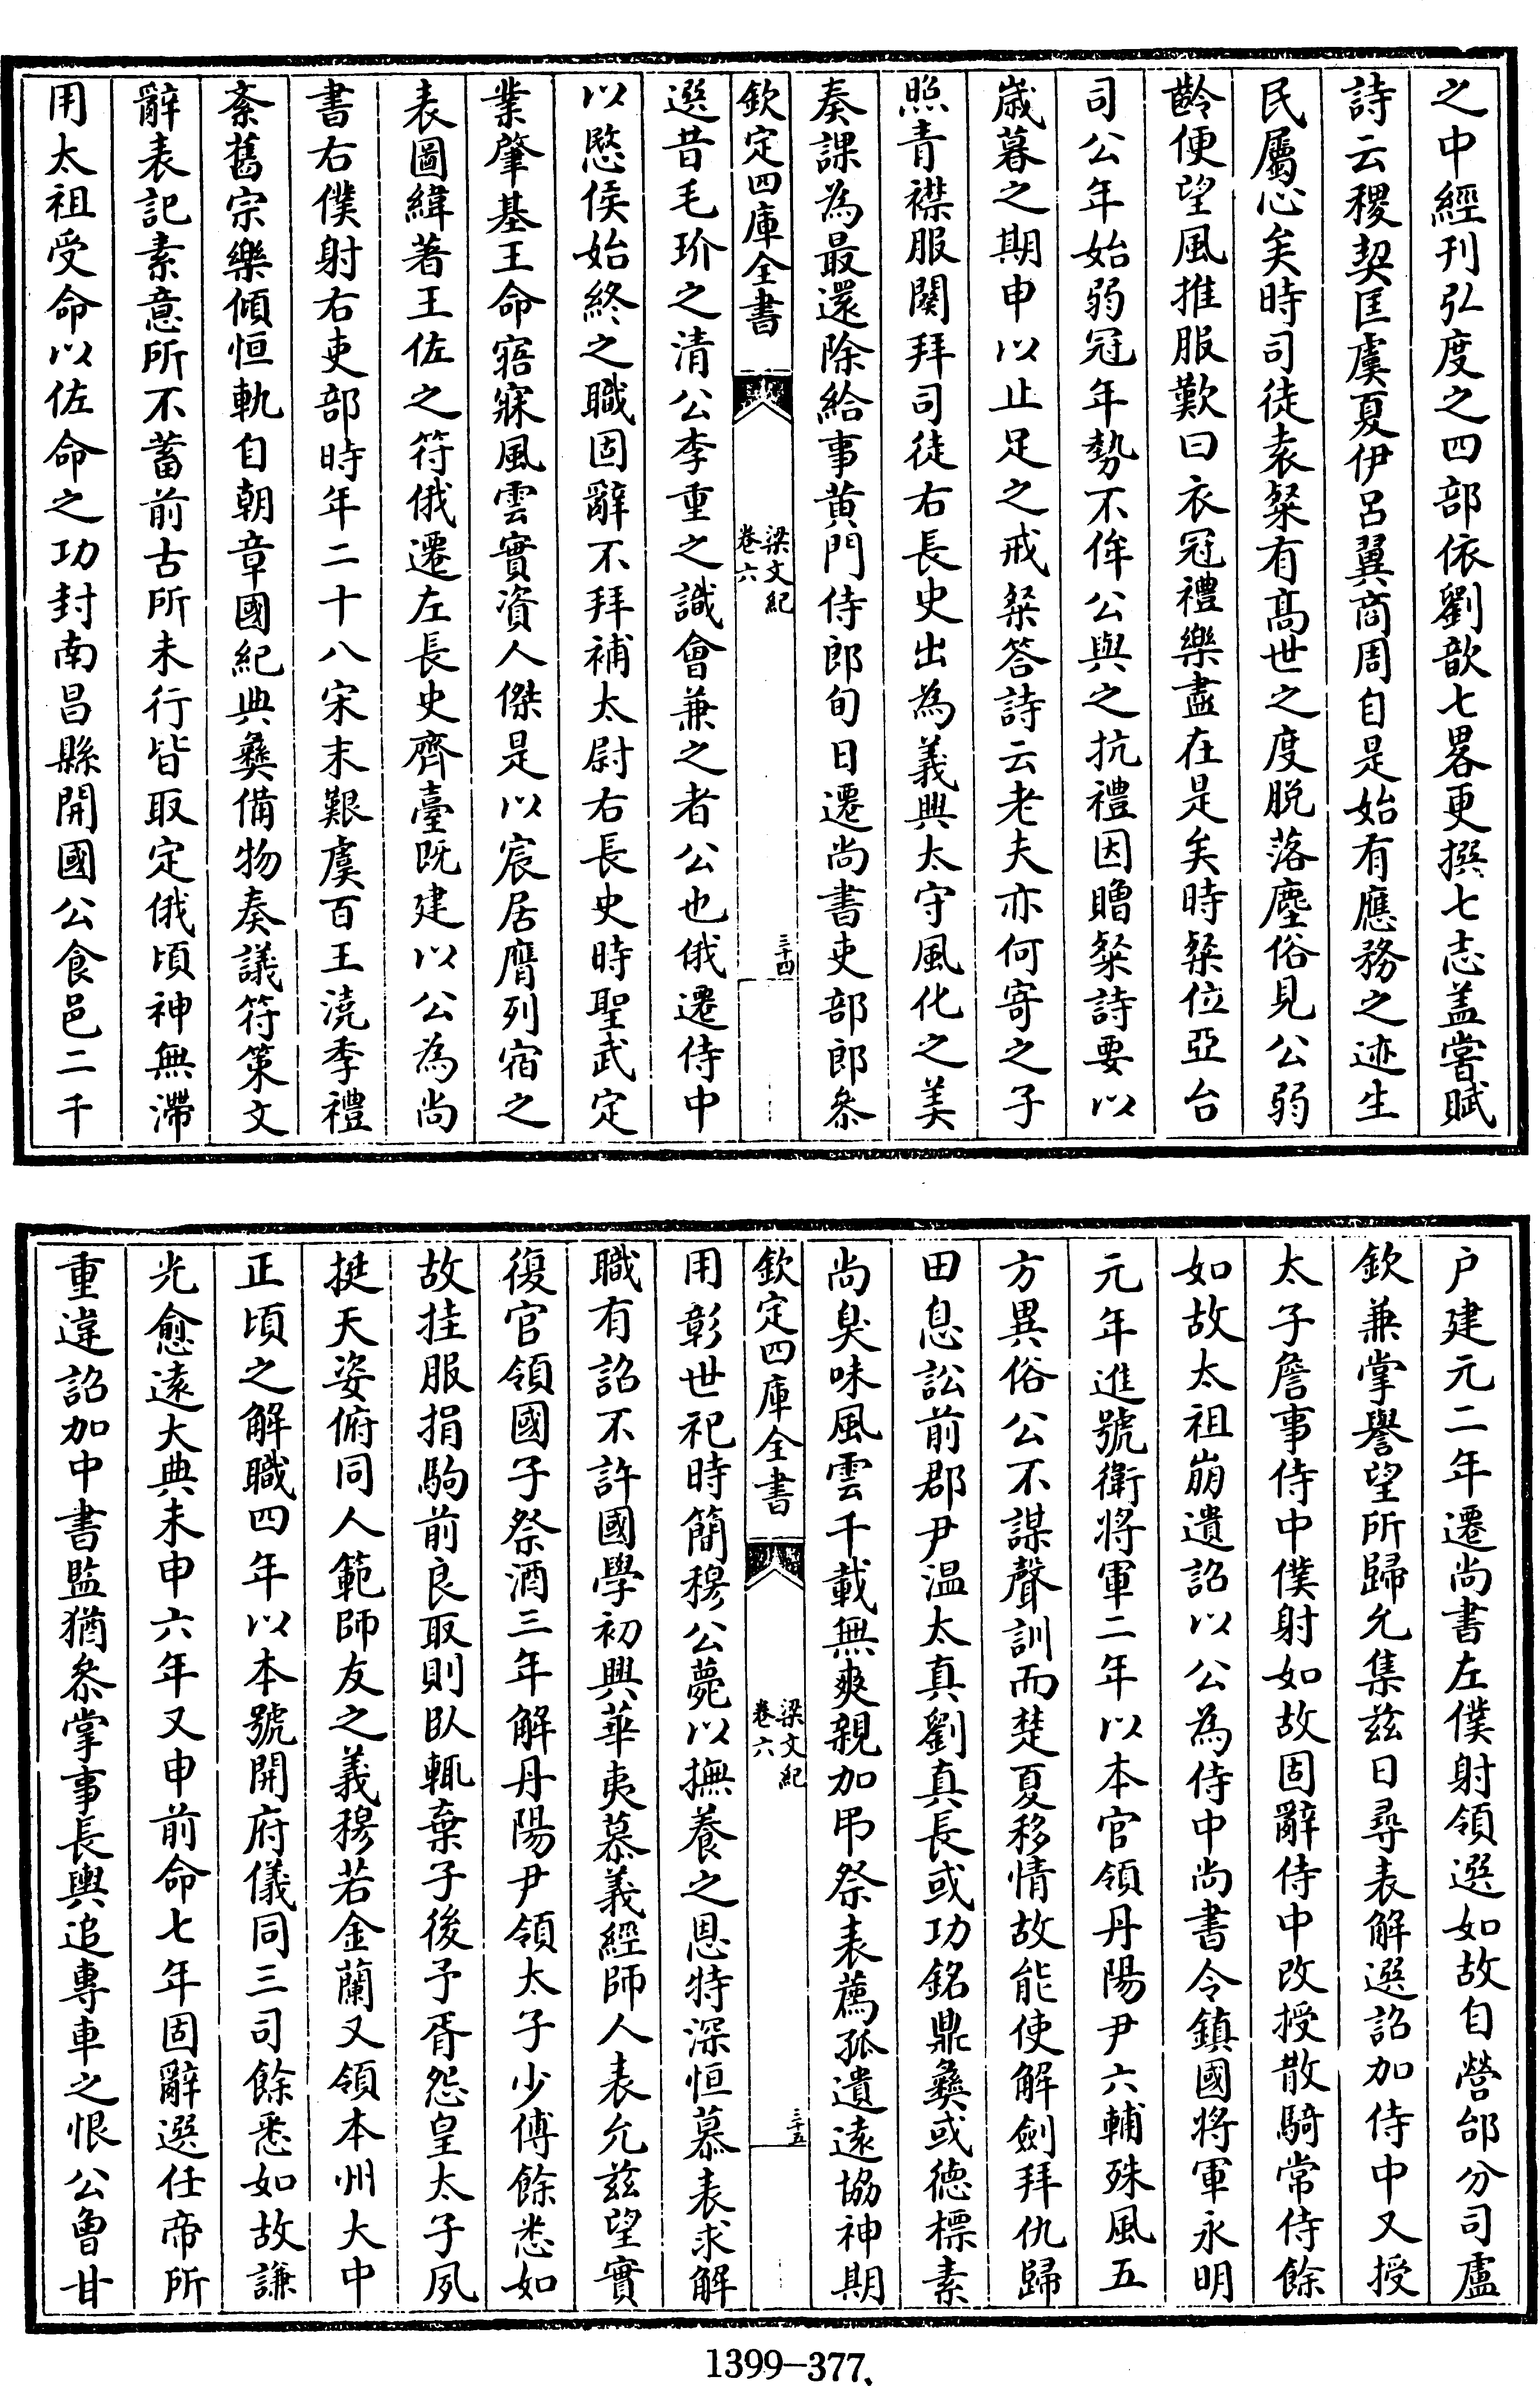 之中經刊弘度之四部依劉歆七畧更撰七志盖嘗賦
詩云稷契匡虞夏伊呂翼商周自是始有應務之迹生
民屬心矣時司徒袁粲有髙世之度脱落塵俗見公弱
齡便望風推服歎曰衣冠禮樂盡在是矣時粲位亞台
司公年始弱冠年勢不侔公與之抗禮因贈粲詩要以
歲暮之期申以止足之戒粲答詩云老夫亦何寄之子
照青襟服闋拜司徒右長史出為義興太守風化之美
奏課為最還除給事黄門侍郎旬日遷尚書吏部郎叅
欽定四庫全書
梁文紀
卷六
三十四
選昔毛玠之清公李重之識會兼之者公也俄遷侍中
以愍侯始終之職固辭不拜補太尉右長史時聖武定
業肇基王命寤寐風雲實資人傑是以宸居膺列宿之
表圖緯著王佐之符俄遷左長史齊臺既建以公為尚
書右僕射右吏部時年二十八宋末艱虞百王澆季禮
紊舊宗樂傾恒軌自朝章國紀典彝備物奏議符策文
辭表記素意所不蓄前古所未行皆取定俄頃神無滯
用太祖受命以佐命之功封南昌縣開國公食邑二千
户建元二年遷尚書左僕射領選如故自營郃分司盧
欽兼掌譽望所歸允集兹日尋表解選詔加侍中又授
太子詹事侍中僕射如故固辭侍中改授散騎常侍餘
如故太祖崩遺詔以公為侍中尚書令鎮國將軍永明
元年進號衛將軍二年以本官領丹陽尹六輔殊風五
方異俗公不謀聲訓而楚夏移情故能使解劒拜仇歸
田息訟前郡尹温太真劉真長或功銘鼎彝或德標素
尚臭味風雲千載無爽親加弔祭表薦孤遺逺協神期
欽定四庫全書
梁文紀
卷六
三十五
用彰世祀時簡穆公薨以撫養之恩特深恒慕表求解
職有詔不許國學初興華夷慕義經師人表允兹望實
復官領國子祭酒三年解丹陽尹領太子少傅餘悉如
故挂服捐駒前良取則臥轍棄子後予胥怨皇太子夙
挺天姿俯同人範師友之義穆若金蘭又領本州大中
正頃之解職四年以本號開府儀同三司餘悉如故謙
光愈逺大典未申六年又申前命七年固辭選任帝所
重違詔加中書監猶叅掌事長輿追專車之恨公曾甘
1399—377